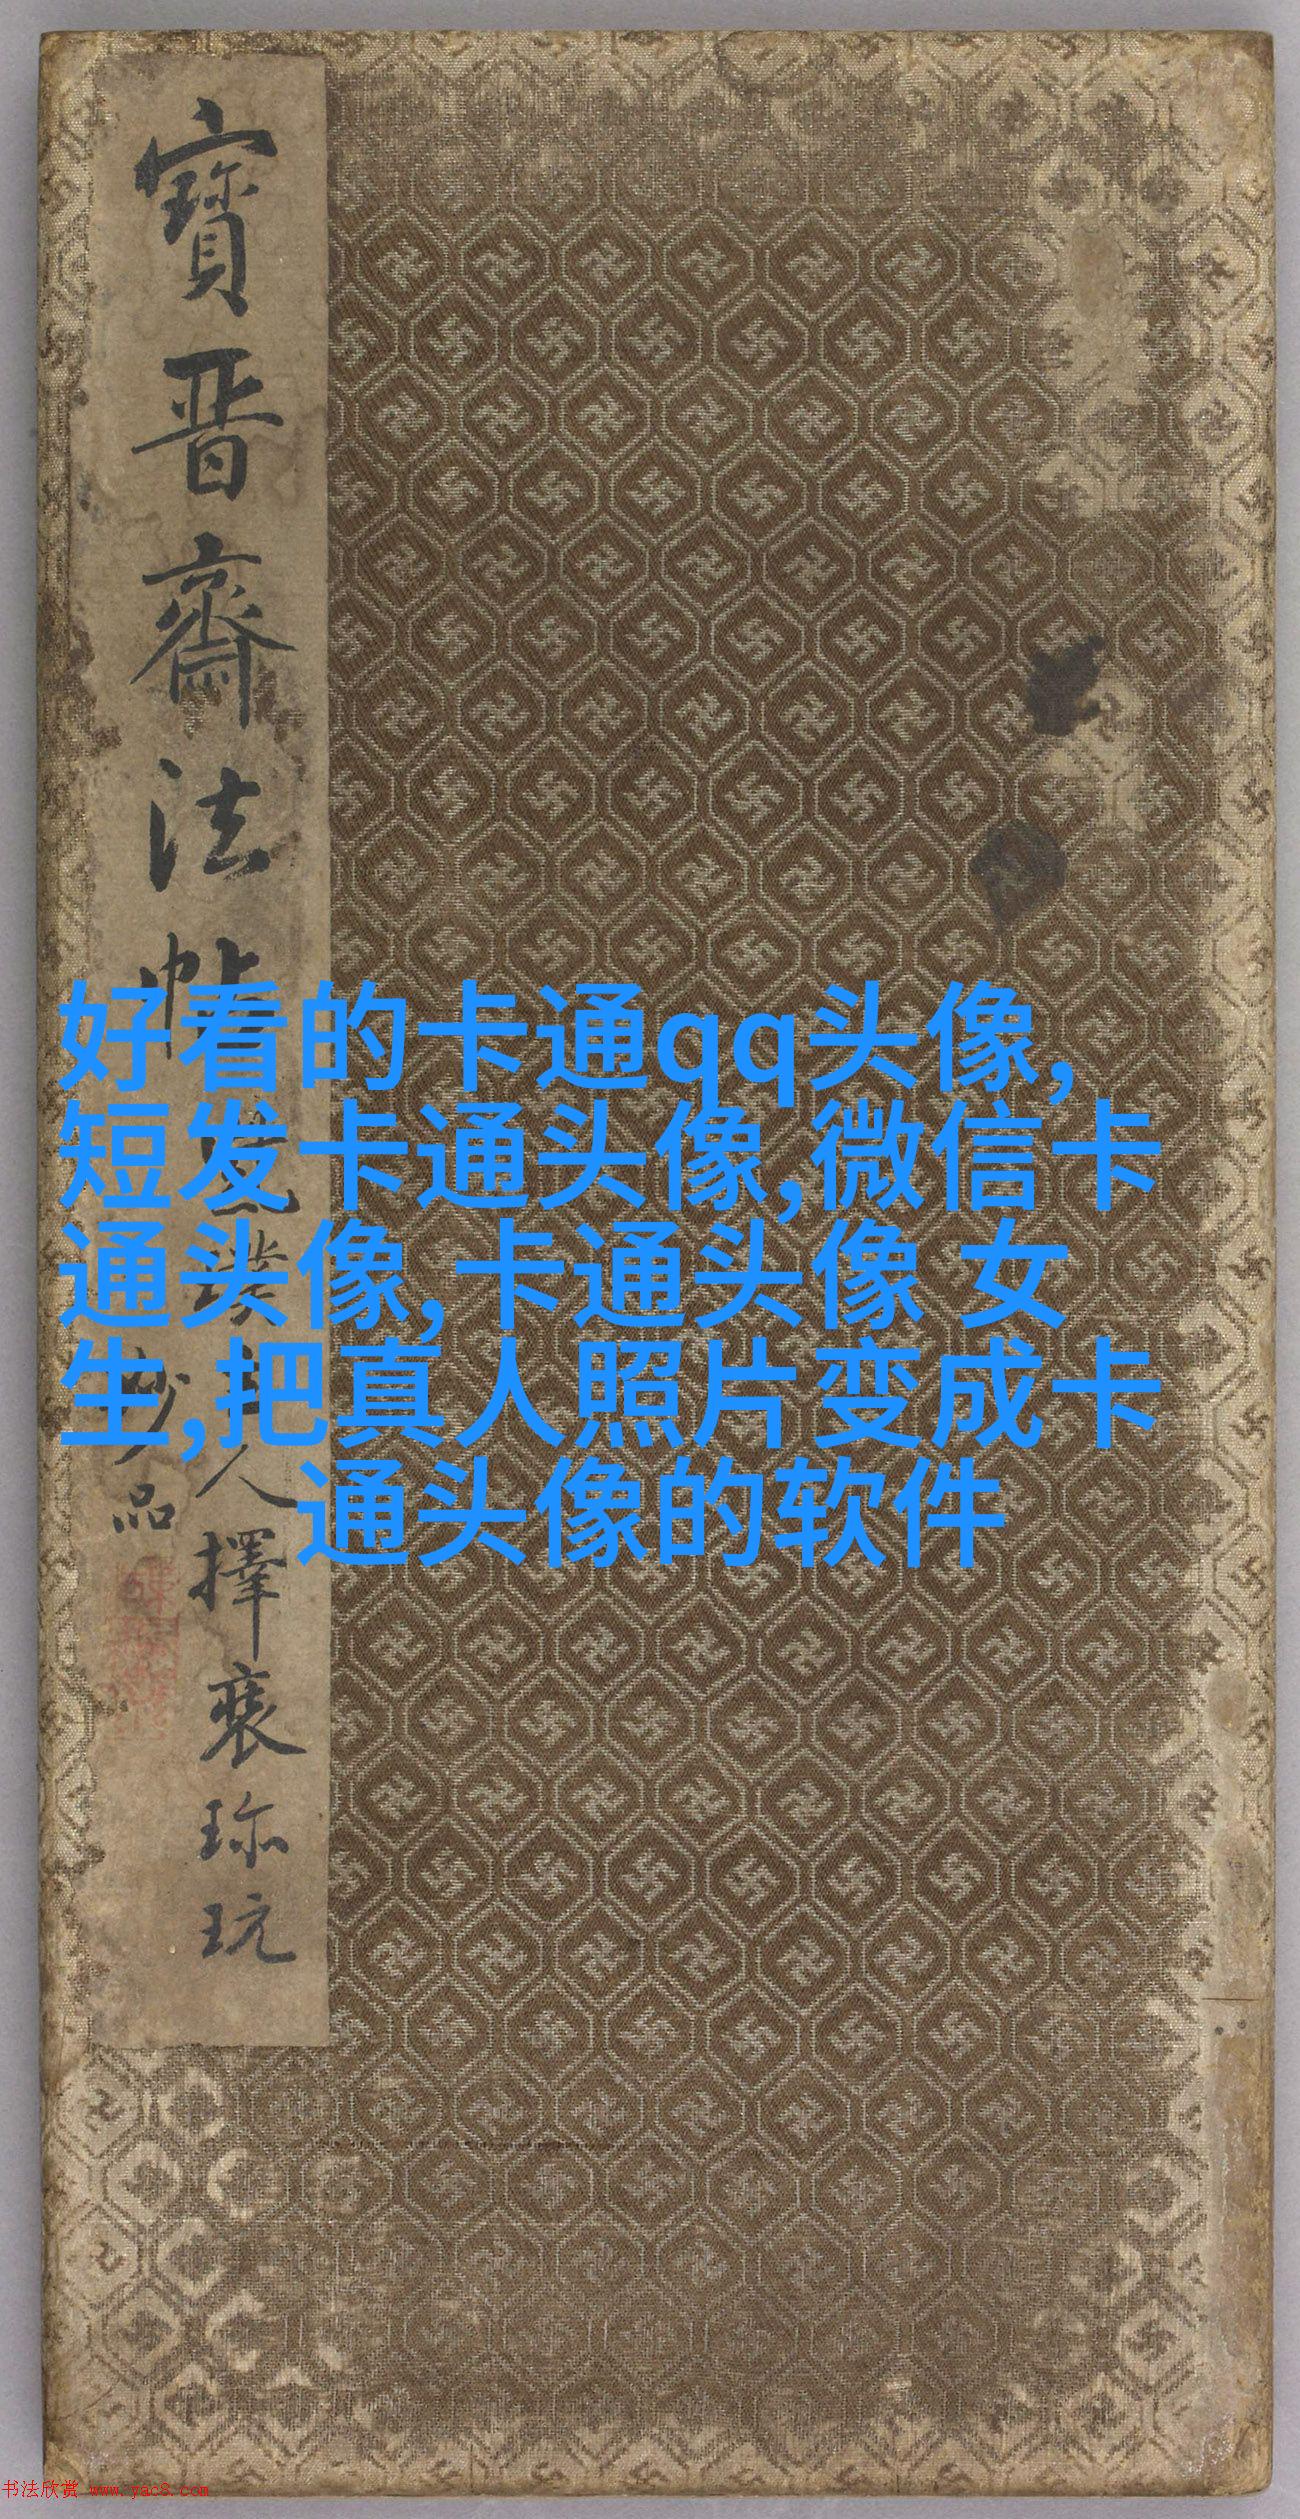 寶晉齋法帖
人擇裘珎玩
妙品
好看的卡通qq头像,
短发卡通头像,微信卡
通头像,卡通头像 女
生,把真人照片变成卡
通头像的软件
书法欣赏 www.yac8.com